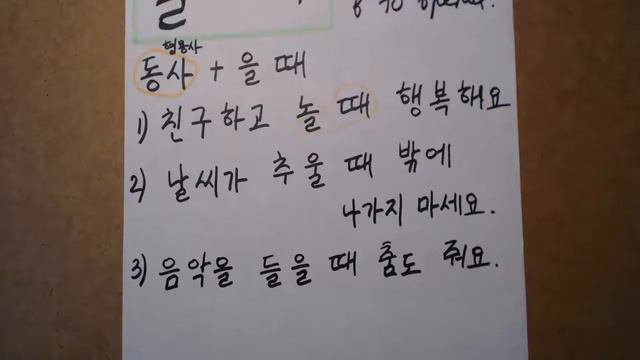 을
형용사
동사 + 을 때
1) 친구하고 놀 때 행복해요
2) 날씨가 추울 때 밖에
나가지 마세요.
3) 음악을 들을 때 춤도 춰요.